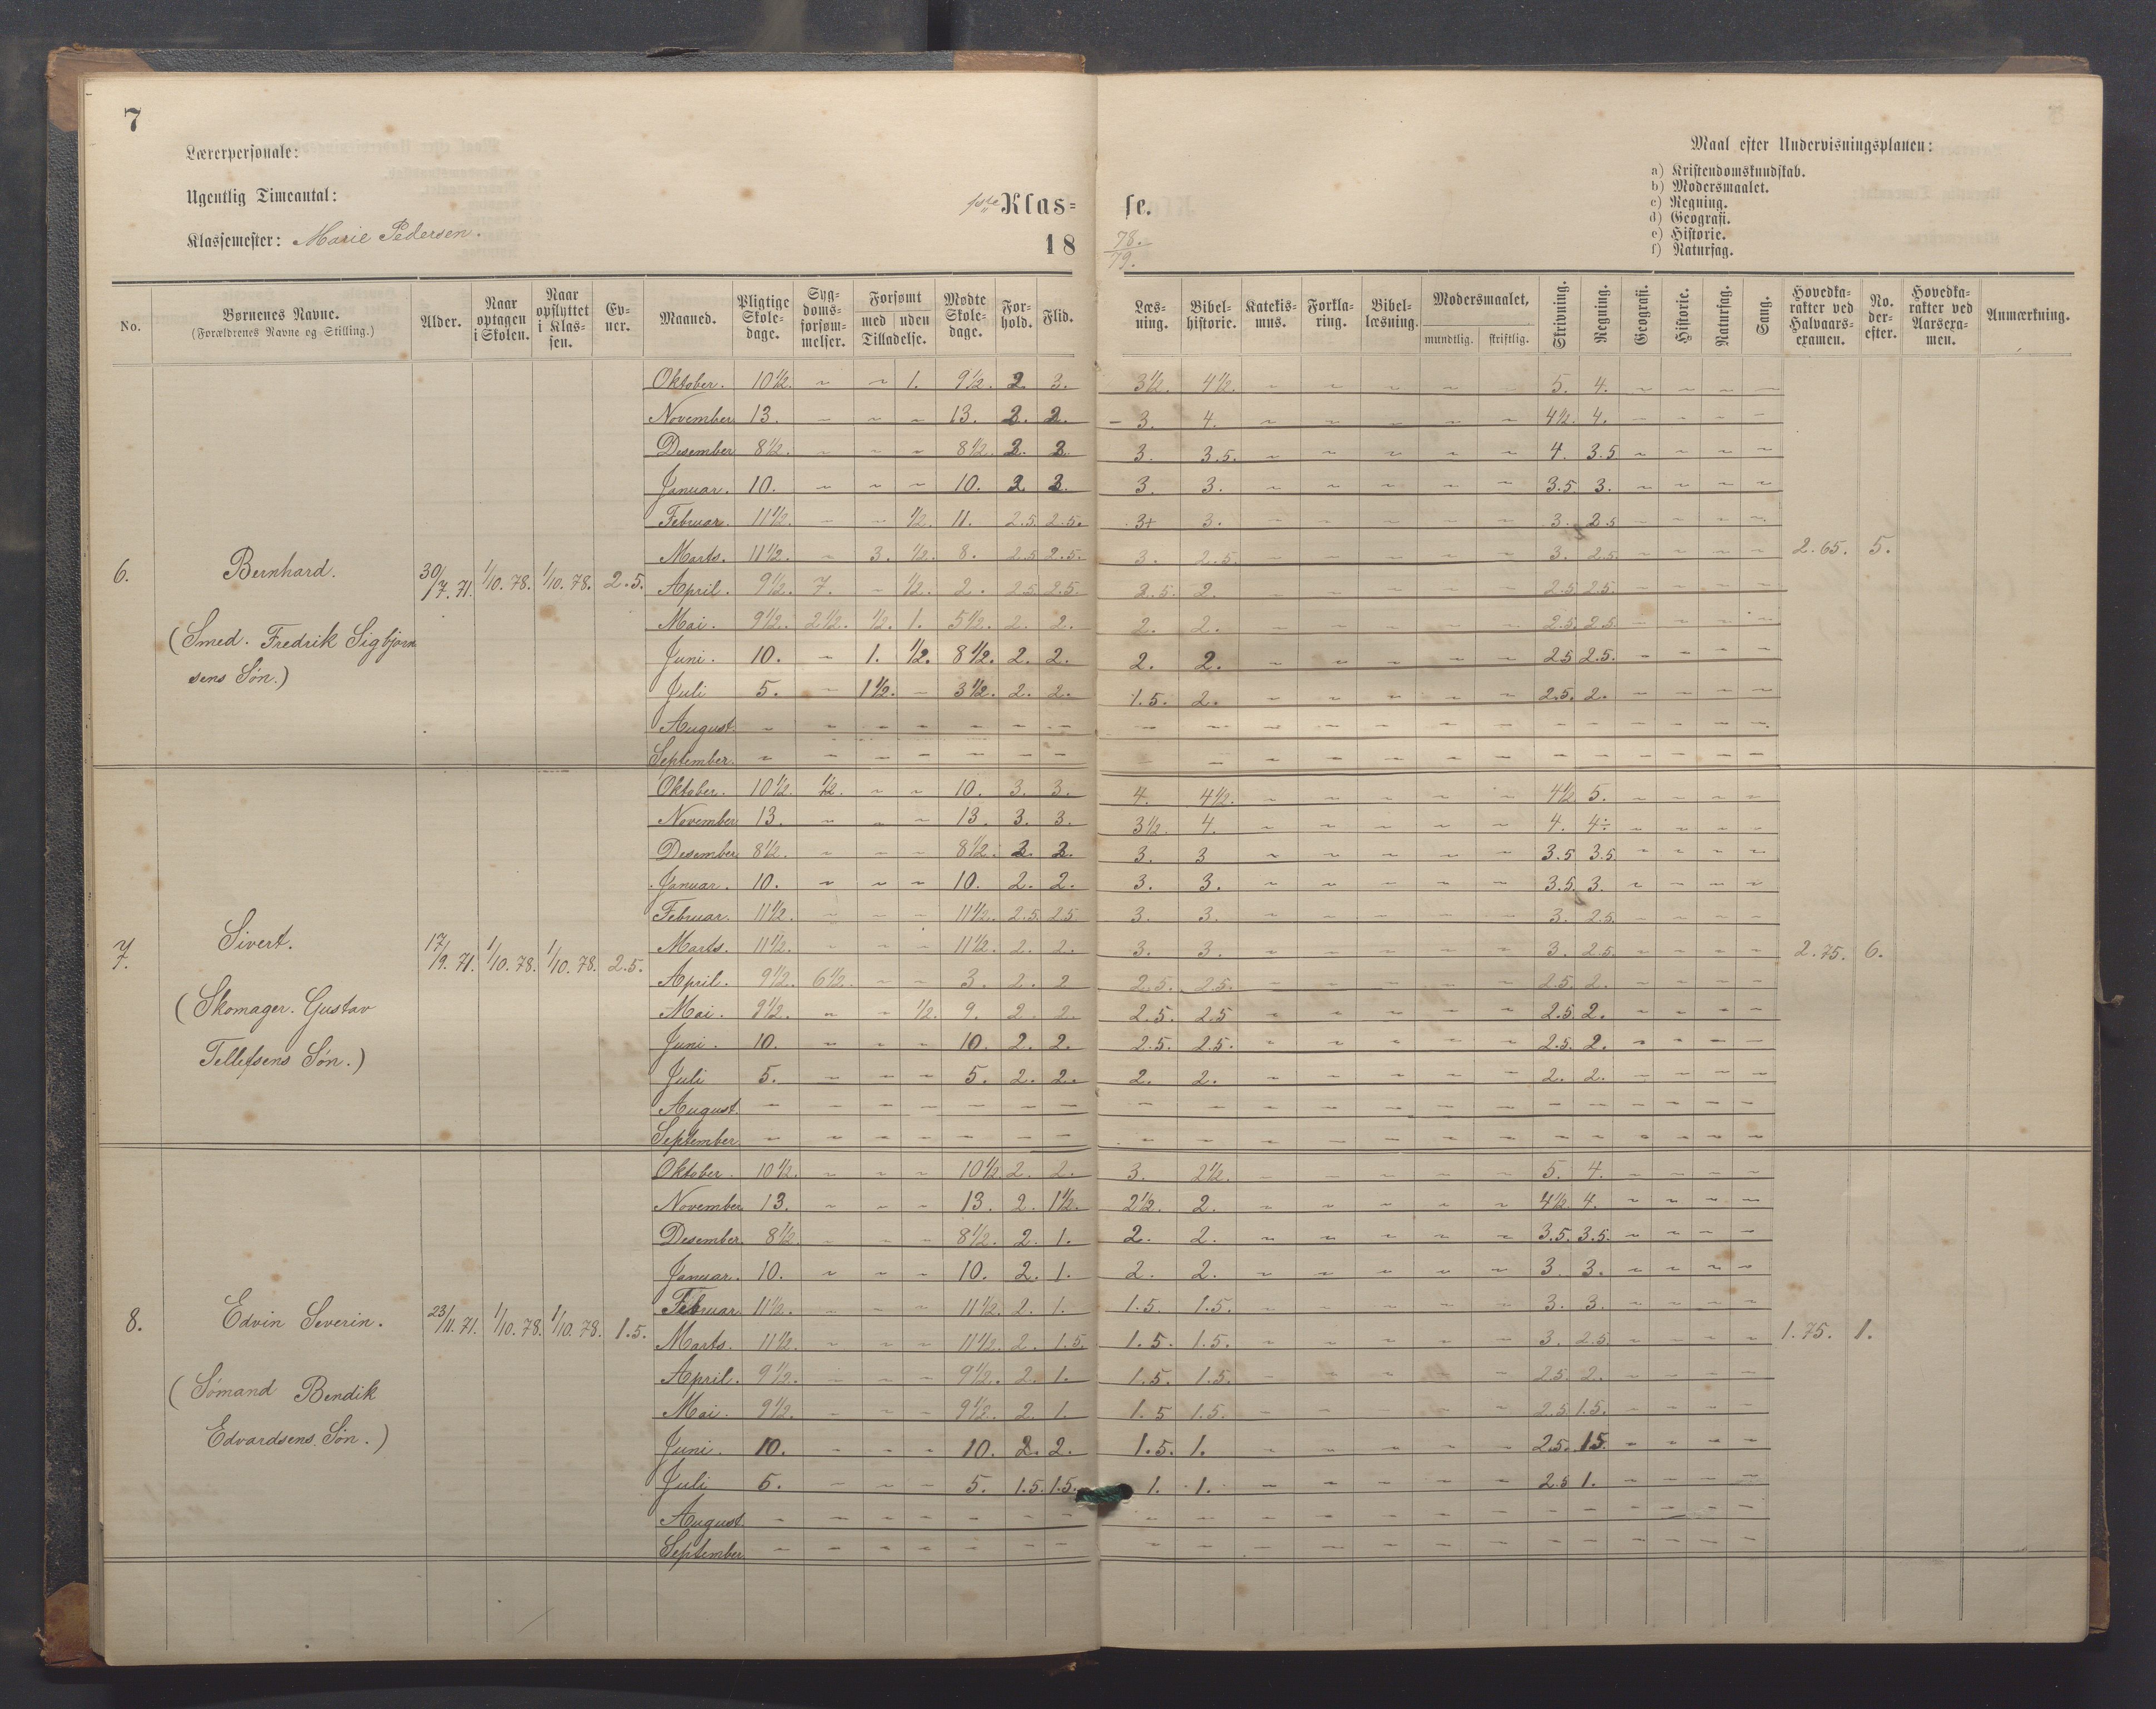 7
Lærerpersonale:
Ugentlig Timeantal:
Klassemester: Marie Pedersen.
1ste Klas= se.
18 78./79.
Maal efter Undervisningsplanen:
a) Kristendomskundskab.
b) Modersmaalet.
c) Regning.
d) Geografi.
e) Historie.
f) Naturfag.
No. | Børnenes Navne. (Forældrenes Navne og Stilling.) | Alder. | Naar optagen i Skolen. | Naar opflyttet i Klas=sen. | Ev=ner. | Maaned. | Pligtige Skole=dage. | Syg=doms=forsøm=melser. | Forsømt med uden Tilladelse. | Mødte Skole=dage. | For=hold. | Flid. | Læs=ning. | Bibel=historie. | Katekis=mus. | Forkla=ring. | Bibel=læsning. | Modersmaalet, mundtlig. skriftlig. | Skrivning. | Regning. | Geografi. | Historie. | Naturfag. | Sang. | Hovedka=rakter ved Halvaars=examen. | No. der=efter. | Hovedka=rakter ved Aarsexa=men. | Anmærkning.
6. Bernhard. 30/7. 71. 1/10. 78. 1/10. 78. 2.5. 2.65. 5.
(Smed. Fredrik Sigbjørn
sens Søn.)
Oktober. 10½. ~ ~ 1. 9½. 2. 3. 3½. 4½. ~ ~ ~ ~ ~ 5. 4. ~ ~ ~ ~
November 13. ~ ~ ~ 13. 2. 2. 3. 4. ~ ~ ~ ~ ~ 4½. 4. ~ ~ ~ ~
Desember 8½. ~ ~ ~ 8½. 2. 2. 3. 3.5. ~ ~ ~ ~ ~ 4. 3.5 ~ ~ ~ ~
Januar. 10. ~ ~ ~ 10. 2. 2. 3. 3. ~ ~ ~ ~ ~ 3.5 3. ~ ~ ~ ~
Februar. 11½. ~ ~ ½. 11. 2.5. 2.5. 3+ 3. ~ ~ ~ ~ ~ 3. 2.5 ~ ~ ~ ~
Marts. 11½. ~ 3. ½. 8. 2.5 2.5. 3. 2.5. ~ ~ ~ ~ ~ 3. 2.5. ~ ~ ~ ~
April. 9½. 7. ~ ½. 2. 2.5. 2.5. 2.5. 2. ~ ~ ~ ~ ~ 2.5 2.5. ~ ~ ~ ~
Mai. 9½. 2½. ½. 1. 5½. 2. 2. 2. 2. ~ ~ ~ ~ ~ 2.5. 2.5. ~ ~ ~ ~
Juni. 10. ~ 1. ½. 8½. 2. 2. 2. 2. ~ ~ ~ ~ ~ 2.5 2.5. ~ ~ ~ ~
Juli 5. ~ 1½. ~ 3½. 2. 2. 1.5. 2. ~ ~ ~ ~ ~ 2.5. 2. ~ ~ ~ ~
August. ~ ~ ~ ~ ~ ~ ~ ~ ~ ~ ~ ~ ~ ~ ~ ~ ~ ~ ~ ~
September. ~ ~ ~ ~ ~ ~ ~ ~ ~ ~ ~ ~ ~ ~ ~ ~ ~ ~ ~ ~
7. Sivert. 17/9. 71. 1/10. 78. 1/10. 78. 2.5. 2.75. 6.
(Skomager. Gustav
Tellefsens Søn.)
Oktober. 10½. ½. ~ ~ 10. 3. 3. 4. 4½. ~ ~ ~ ~ ~ 4½ 5. ~ ~ ~ ~
November 13. ~ ~ ~ 13. 3. 3. 3½. 4. ~ ~ ~ ~ ~ 4. 4÷ ~ ~ ~ ~
Desember 8½. ~ ~ ~ 8½. 2. 2. 3. 3 ~ ~ ~ ~ ~ 3.5 3.5. ~ ~ ~ ~
Januar. 10. ~ ~ ~ 10. 2. 2. 3. 3. ~ ~ ~ ~ ~ 3.5. 3. ~ ~ ~ ~
Februar. 11½. ~ ~ ~ 11½. 2.5. 2.5 3. 3. ~ ~ ~ ~ ~ 3. 2.5. ~ ~ ~ ~
Marts. 11½. ~ ~ ~ 11½. 2. 2. 3. 3. ~ ~ ~ ~ ~ 3. 2.5. ~ ~ ~ ~
April. 9½. 6½. ~ ~ 3. 2. 2 2.5. 2.5. ~ ~ ~ ~ ~ 2.5. 2. ~ ~ ~ ~
Mai. 9½. ~ ~ ½. 9. 2. 2. 2.5. 2.5 ~ ~ ~ ~ ~ 2.5 2. ~ ~ ~ ~
Juni. 10. ~ ~ ~ 10. 2. 2. 2.5. 2.5. ~ ~ ~ ~ ~ 2.5. 2. ~ ~ ~ ~
Juli 5. ~ ~ ~ 5. 2. 2. 2. 2. ~ ~ ~ ~ ~ 2. 2. ~ ~ ~ ~
August. ~ ~ ~ ~ ~ ~ ~ ~ ~ ~ ~ ~ ~ ~ ~ ~ ~ ~ ~ ~
September. ~ ~ ~ ~ ~ ~ ~ ~ ~ ~ ~ ~ ~ ~ ~ ~ ~ ~ ~ ~
8. Edvin Severin. 23/11. 71. 1/10. 78. 1/10. 78. 1.5. 1.75. 1.
(Sømand Bendik
Edvardsens Søn.)
Oktober. 10½. ~ ~ ~ 10½ 2. 2. 3. 2½. ~ ~ ~ ~ ~ 5. 4. ~ ~ ~ ~
November 13. ~ ~ ~ 13. 2. 1½. 2½. 2. ~ ~ ~ ~ ~ 4½ 4. ~ ~ ~ ~
Desember. 8½. ~ ~ ~ 8½. 2. 1. 2. 2. ~ ~ ~ ~ ~ 3.5. 3.5. ~ ~ ~ ~
Januar. 10. ~ ~ ~ 10. 2. 1. 2. 2. ~ ~ ~ ~ ~ 3. 3. ~ ~ ~ ~
Februar. 11½. ~ ~ ~ 11½. 2. 1. 1.5. 1.5. ~ ~ ~ ~ ~ 3. 3. ~ ~ ~ ~
Marts. 11½. ~ ~ ~ 11½. 2. 1.5. 1.5. 1.5. ~ ~ ~ ~ ~ 3. 2.5. ~ ~ ~ ~
April. 9½. ~ ~ ~ 9½. 2. 1. 1.5. 1.5. ~ ~ ~ ~ ~ 2.5. 2. ~ ~ ~ ~
Mai. 9½. ~ ~ ~ 9½. 2. 1. 1.5 1.5. ~ ~ ~ ~ ~ 2.5 1.5. ~ ~ ~ ~
Juni. 10. ~ ~ ~ 10. 2. 2. 1.5. 1. ~ ~ ~ ~ ~ 2.5. 1.5. ~ ~ ~ ~
Juli 5. ~ ~ ~ 5. 1.5. 1.5. 1. 1. ~ ~ ~ ~ ~ 2.5 1. ~ ~ ~ ~
August. ~ ~ ~ ~ ~ ~ ~ ~ ~ ~ ~ ~ ~ ~ ~ ~ ~ ~ ~ ~
September. ~ ~ ~ ~ ~ ~ ~ ~ ~ ~ ~ ~ ~ ~ ~ ~ ~ ~ ~ ~